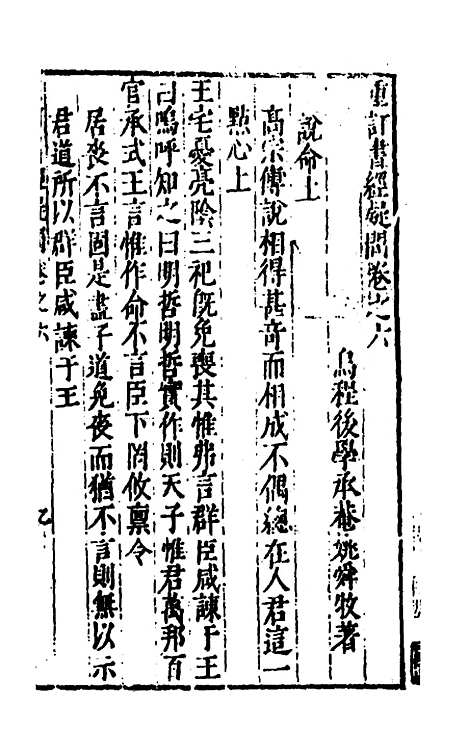 重訂書經疑問卷之六
烏程後學承菴姚舜牧著
說命上
高宗傅說相得甚奇而相成不偶總在人君這一
點心上
王宅憂亮陰三祀既免喪其惟弗言群臣咸諫于王
曰嗚呼知之曰明哲明哲實作則天子惟君萬邦百
官承式王言惟作命不言臣下罔攸禀令
居喪不言固是盡子道免喪而猶不言則無以示
君道所以群臣咸諫于王
卷之六